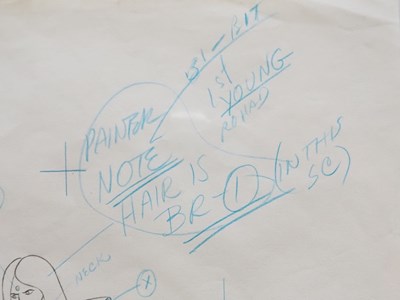 BI-BIT
1st
YOUNG
PAINTOR
NOTE
HAIR IS
BR-1 (IN THIS
SC)
NECK
X